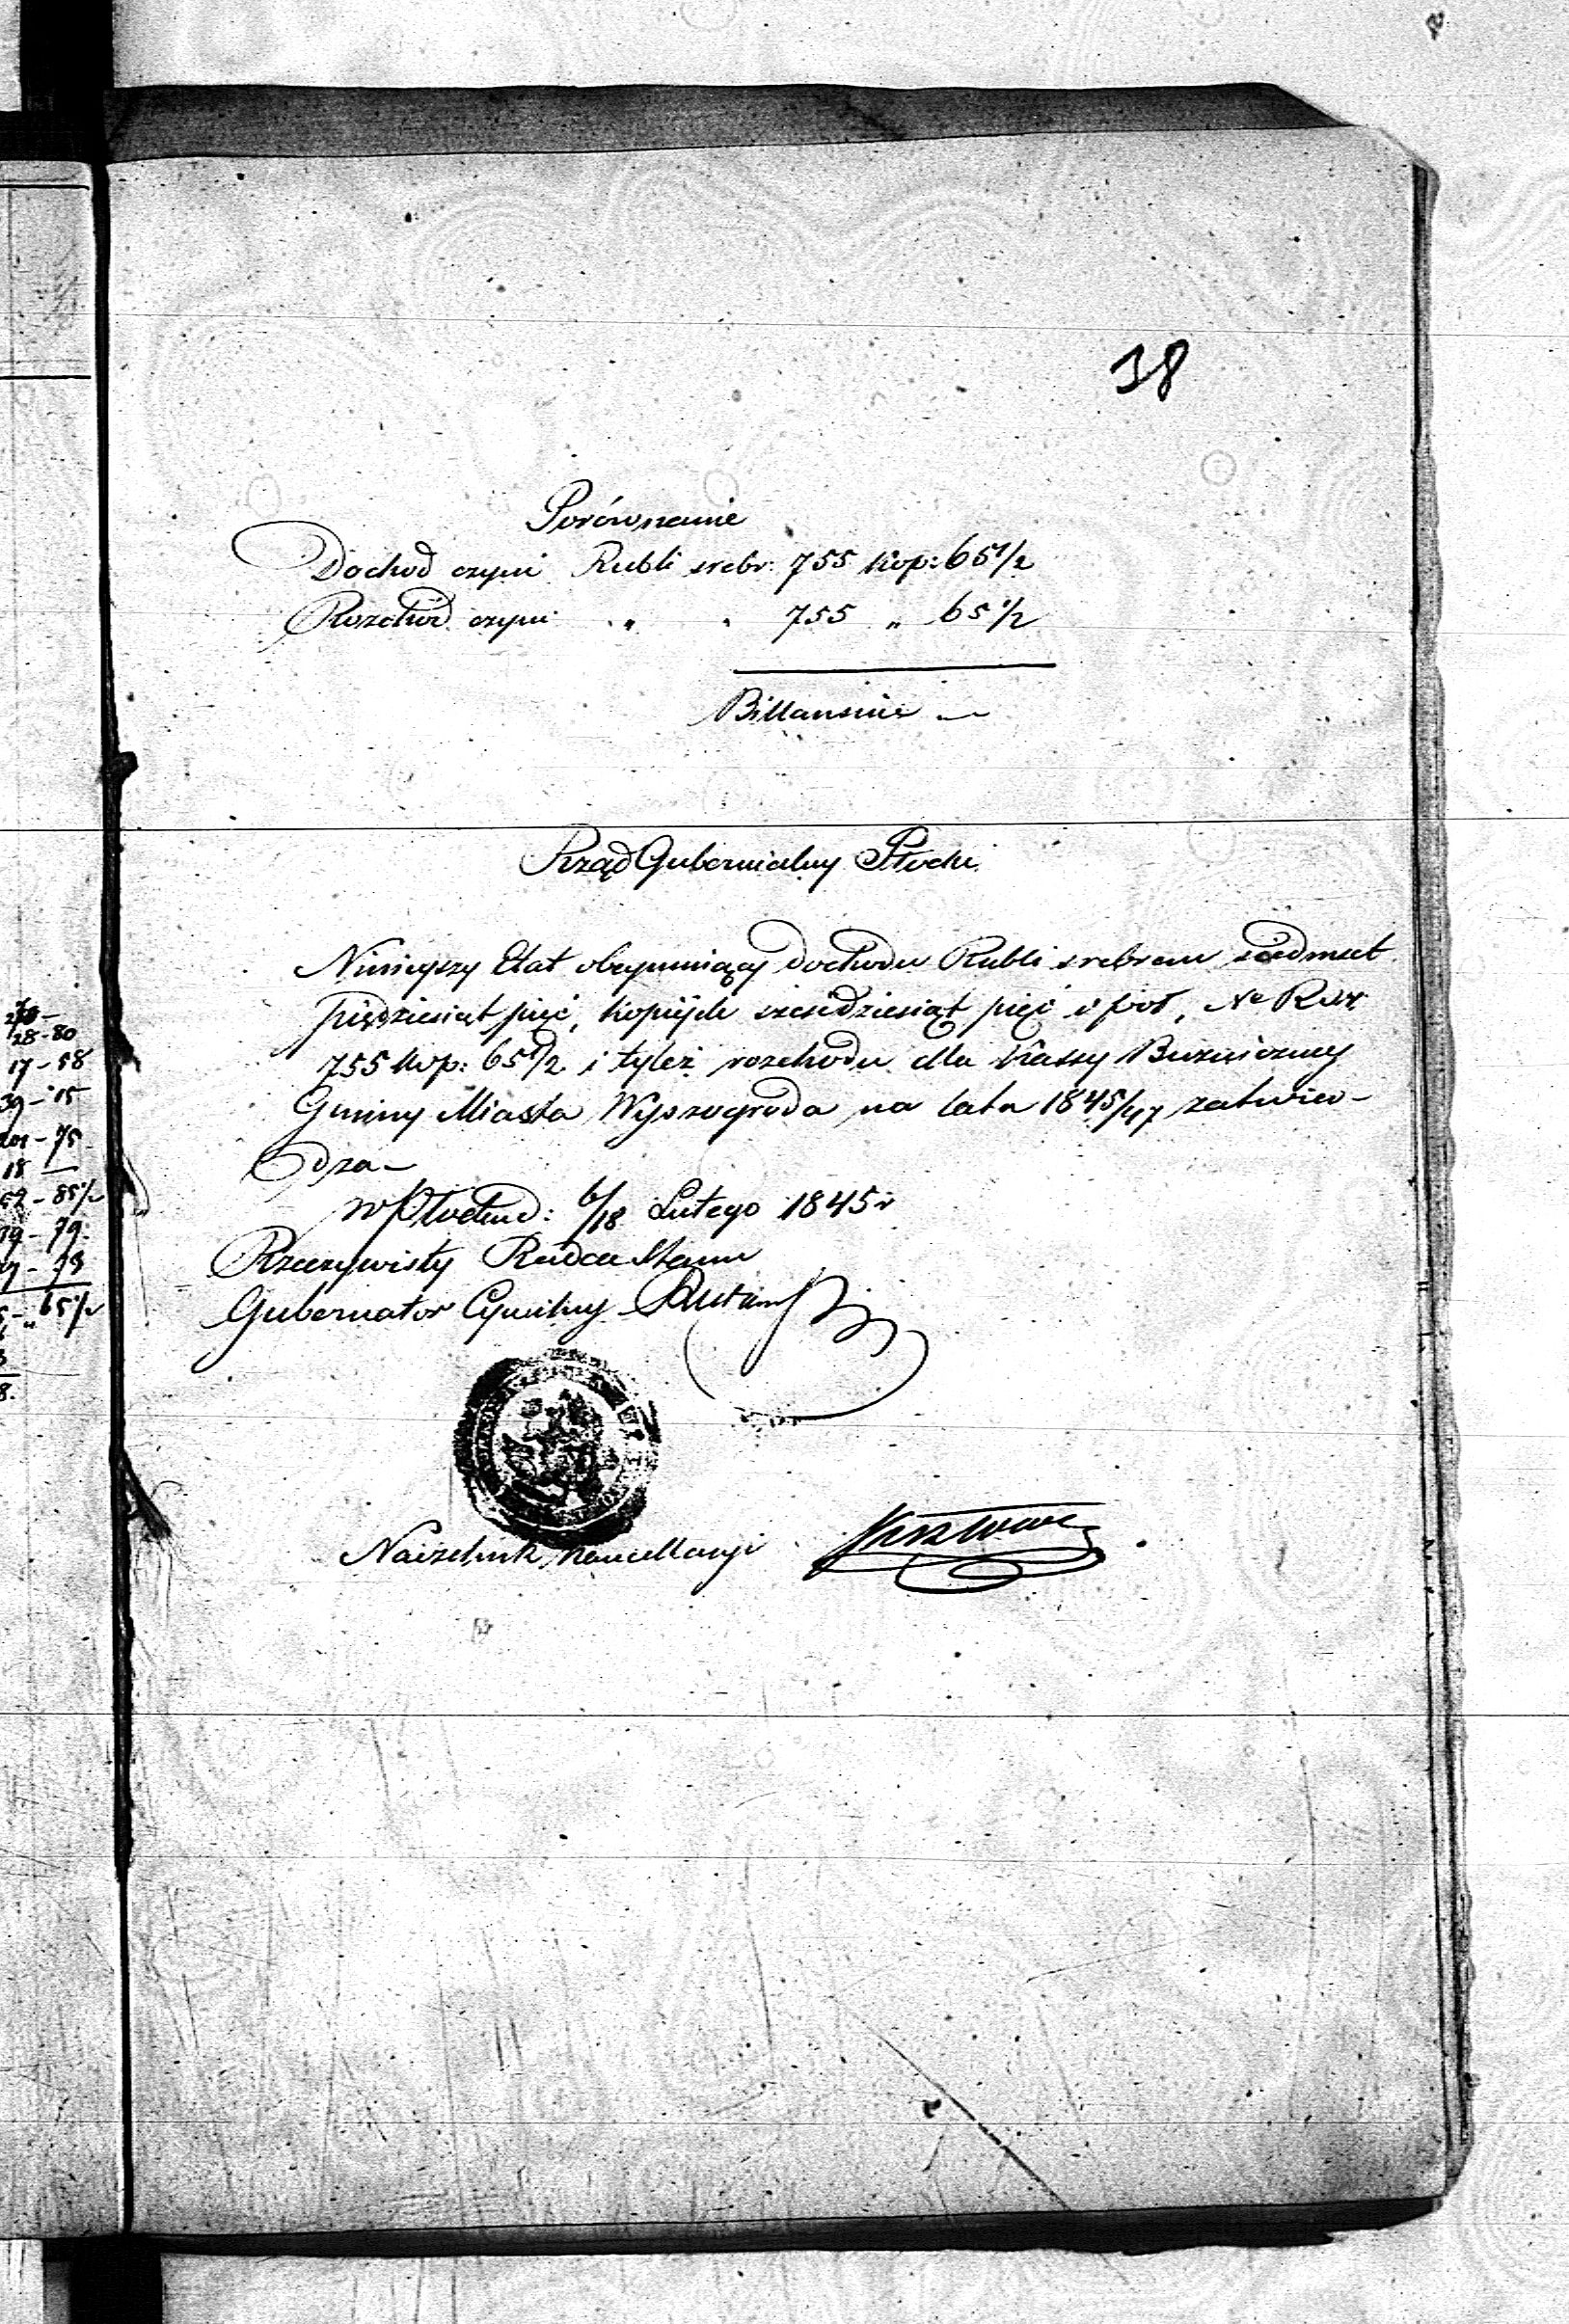 38
Porównanie
Dochod czyni Rubli srebr: 755 kop: 65 1/2
Rozchód czyni " " 755 " 65 1/2
Billansuie —
Rząd Gubernialny Płocki
Ninieyszy Etat obeymuiący dochodu Rubli srebrem siedmset
pięćdziesiąt pięć, kopiejek sześćdziesiąt pięć i pół, Rsr
755 kop: 65 1/2 i tyleż rozchodu dla Kassy Bużniczney
Gminy Miasta Wyszogroda na lata 1845/47 zatwier-
dza —
w Płocku d: 6/18 Lutego 1845 r
Rzeczywisty Radca Stanu
Gubernator Cywilny
Naczelnik Kancellaryi
28-80
17-58
39-15
18 —
19-79
65 1/2